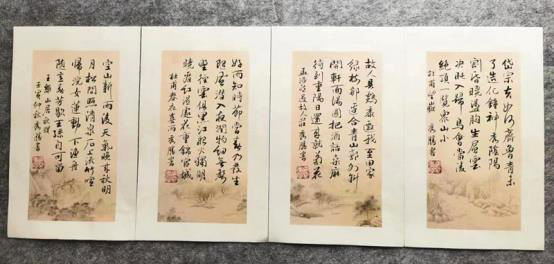 岱宗夫如何齊魯青未
了造化鍾神秀陰陽
割昏曉蕩胸生層雲
決眥入歸鳥會當凌
絕頂一覽眾山小
杜甫望嶽 書
故人具鷄黍邀我至田家
綠樹邨邊合青山郭外斜
開軒面場圃把酒話桑麻
待到重陽日還來就菊花
孟浩然過故人莊 書
好雨知時節當春乃發生
隨風潛入夜潤物細無聲
野徑雲俱黑江船火獨明
曉看紅濕處花重錦官城
杜甫春夜喜雨 書
空山新雨後天氣晚來秋明
月松間照清泉石上流竹喧
歸浣女蓮動下漁舟
隨意春芳歇王孫自可留
王維山居秋暝
壬寅仲秋 書